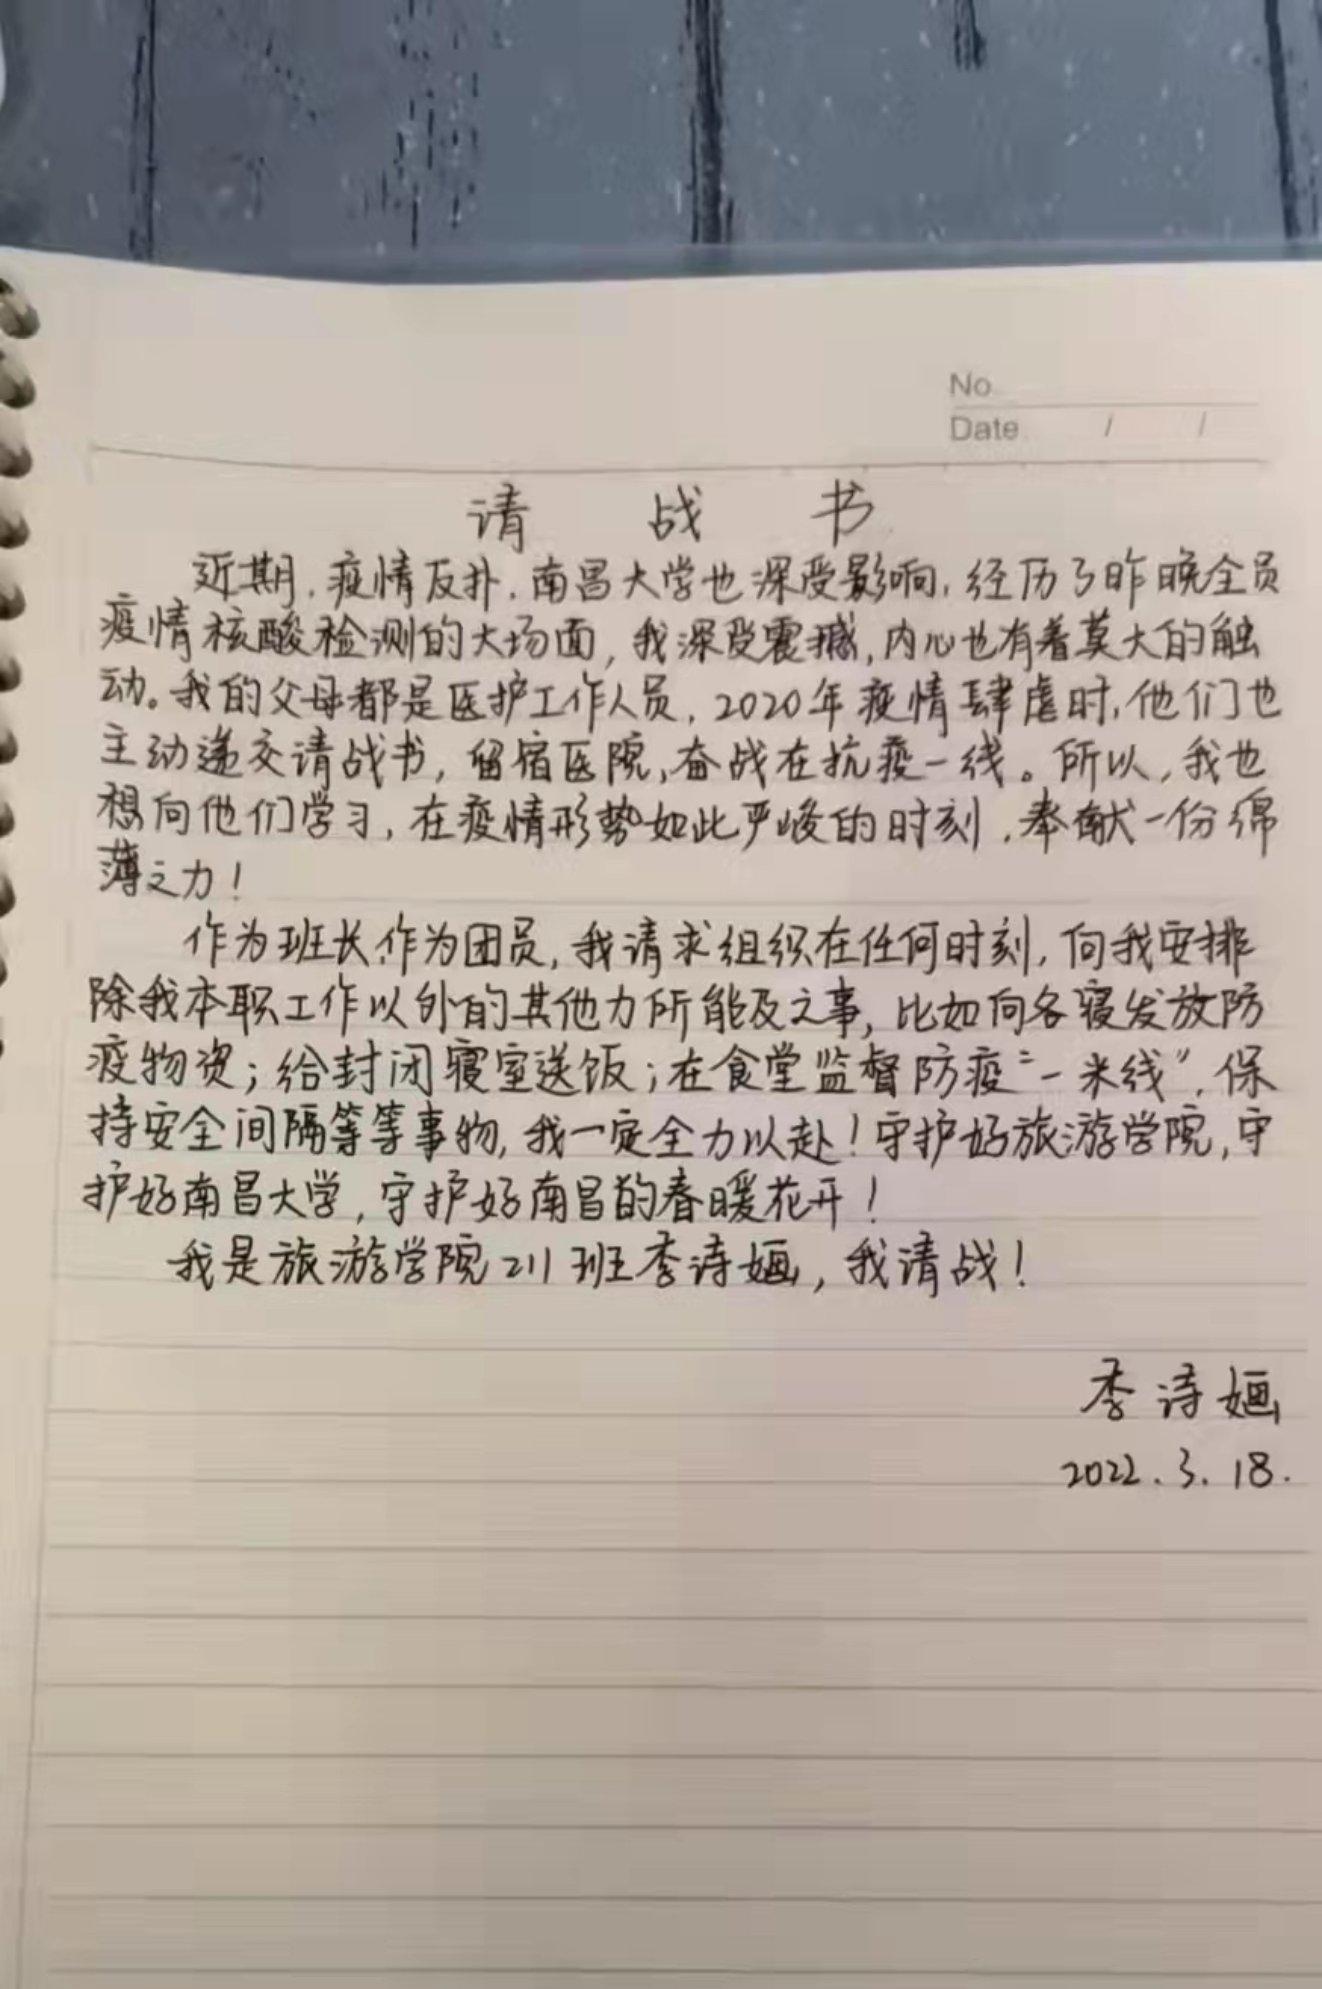 No.
Date. / /
请 战 书
近期,疫情反扑,南昌大学也深受影响,经历了昨晚全员
疫情核酸检测的大场面,我深受震撼,内心也有着莫大的触
动。我的父母都是医护工作人员,2020年疫情肆虐时,他们也
主动递交请战书,留宿医院,奋战在抗疫一线。所以,我也
想向他们学习,在疫情形势如此严峻的时刻,奉献一份绵
薄之力!
作为班长、作为团员,我请求组织在任何时刻,向我安排
除我本职工作以外的其他力所能及之事,比如向各寝发放防
疫物资;给封闭寝室送饭;在食堂监督防疫“一米线”,保
持安全间隔等等事物,我一定全力以赴!守护好旅游学院,守
护好南昌大学,守护好南昌的春暖花开!
我是旅游学院211班李诗婳,我请战!
李诗婳
2022.3.18.